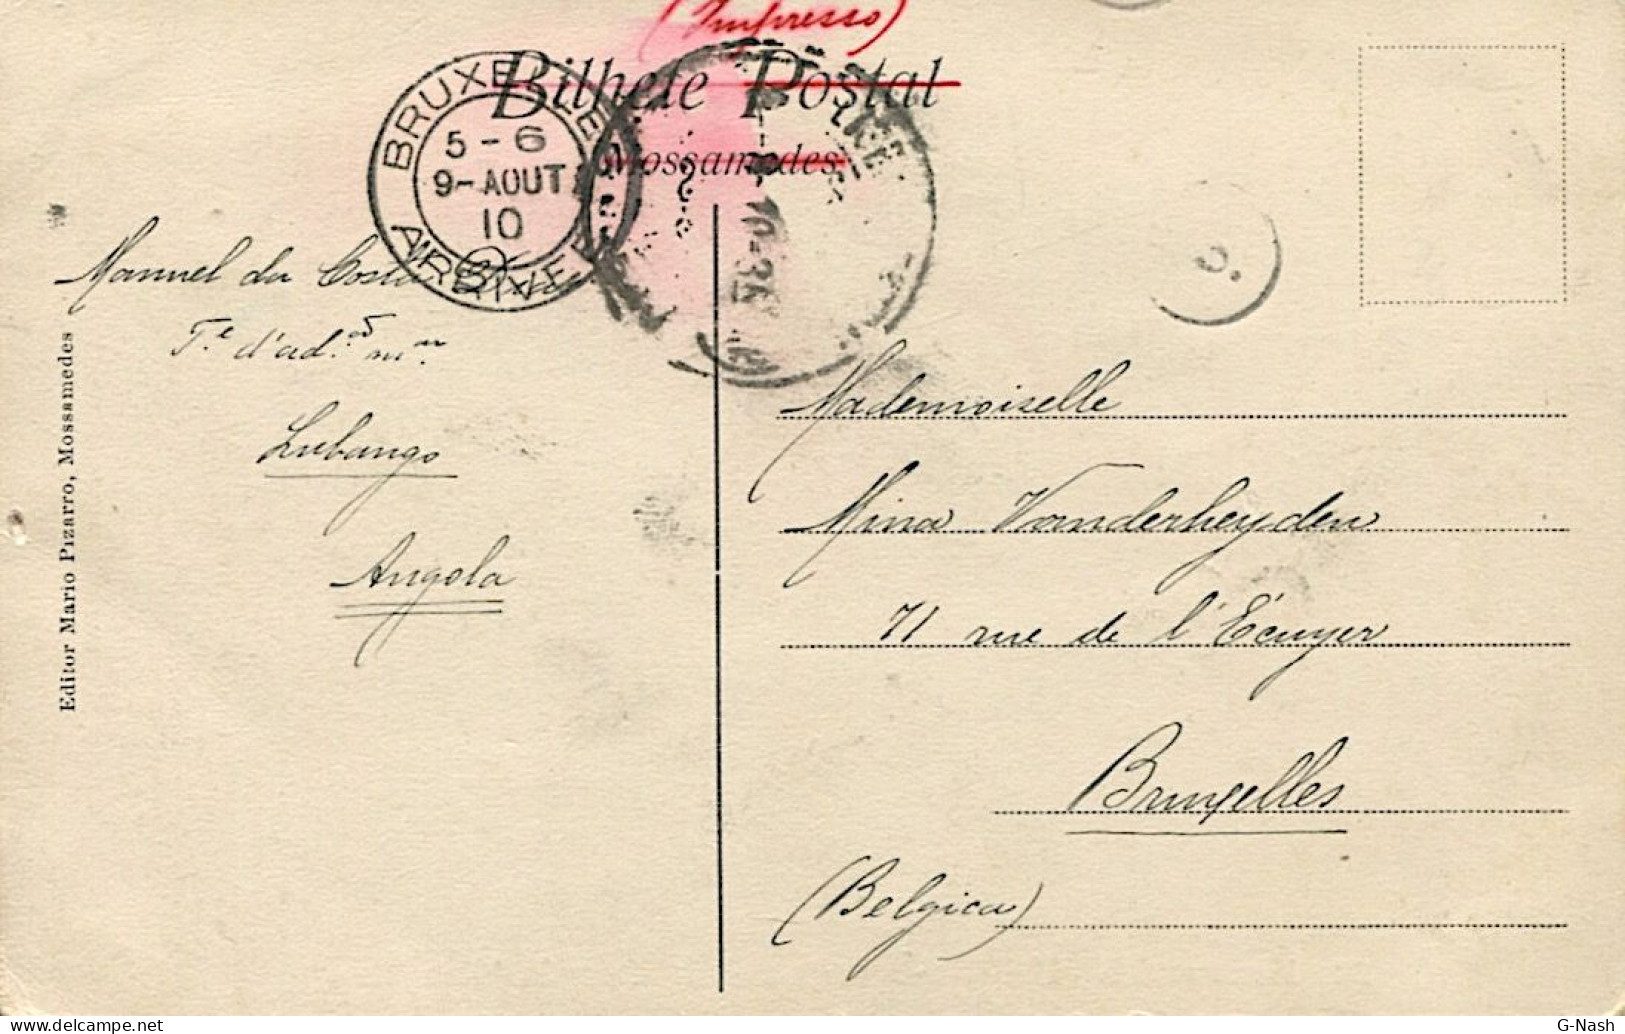 (Impresso)
Bilhete Postal
Mossamedes
BRUXELLES
5-6
9-AOUT
10
ARRIVEE
10-35
Manuel da Costa
T.e d'ad.ão m.ar
Lubango
Angola
Editor Mario Pizarro, Mossamedes
Mademoiselle
Mina Vanderheyden
71 rue de l'Écuyer
Bruxelles
(Belgica)
G-Nash